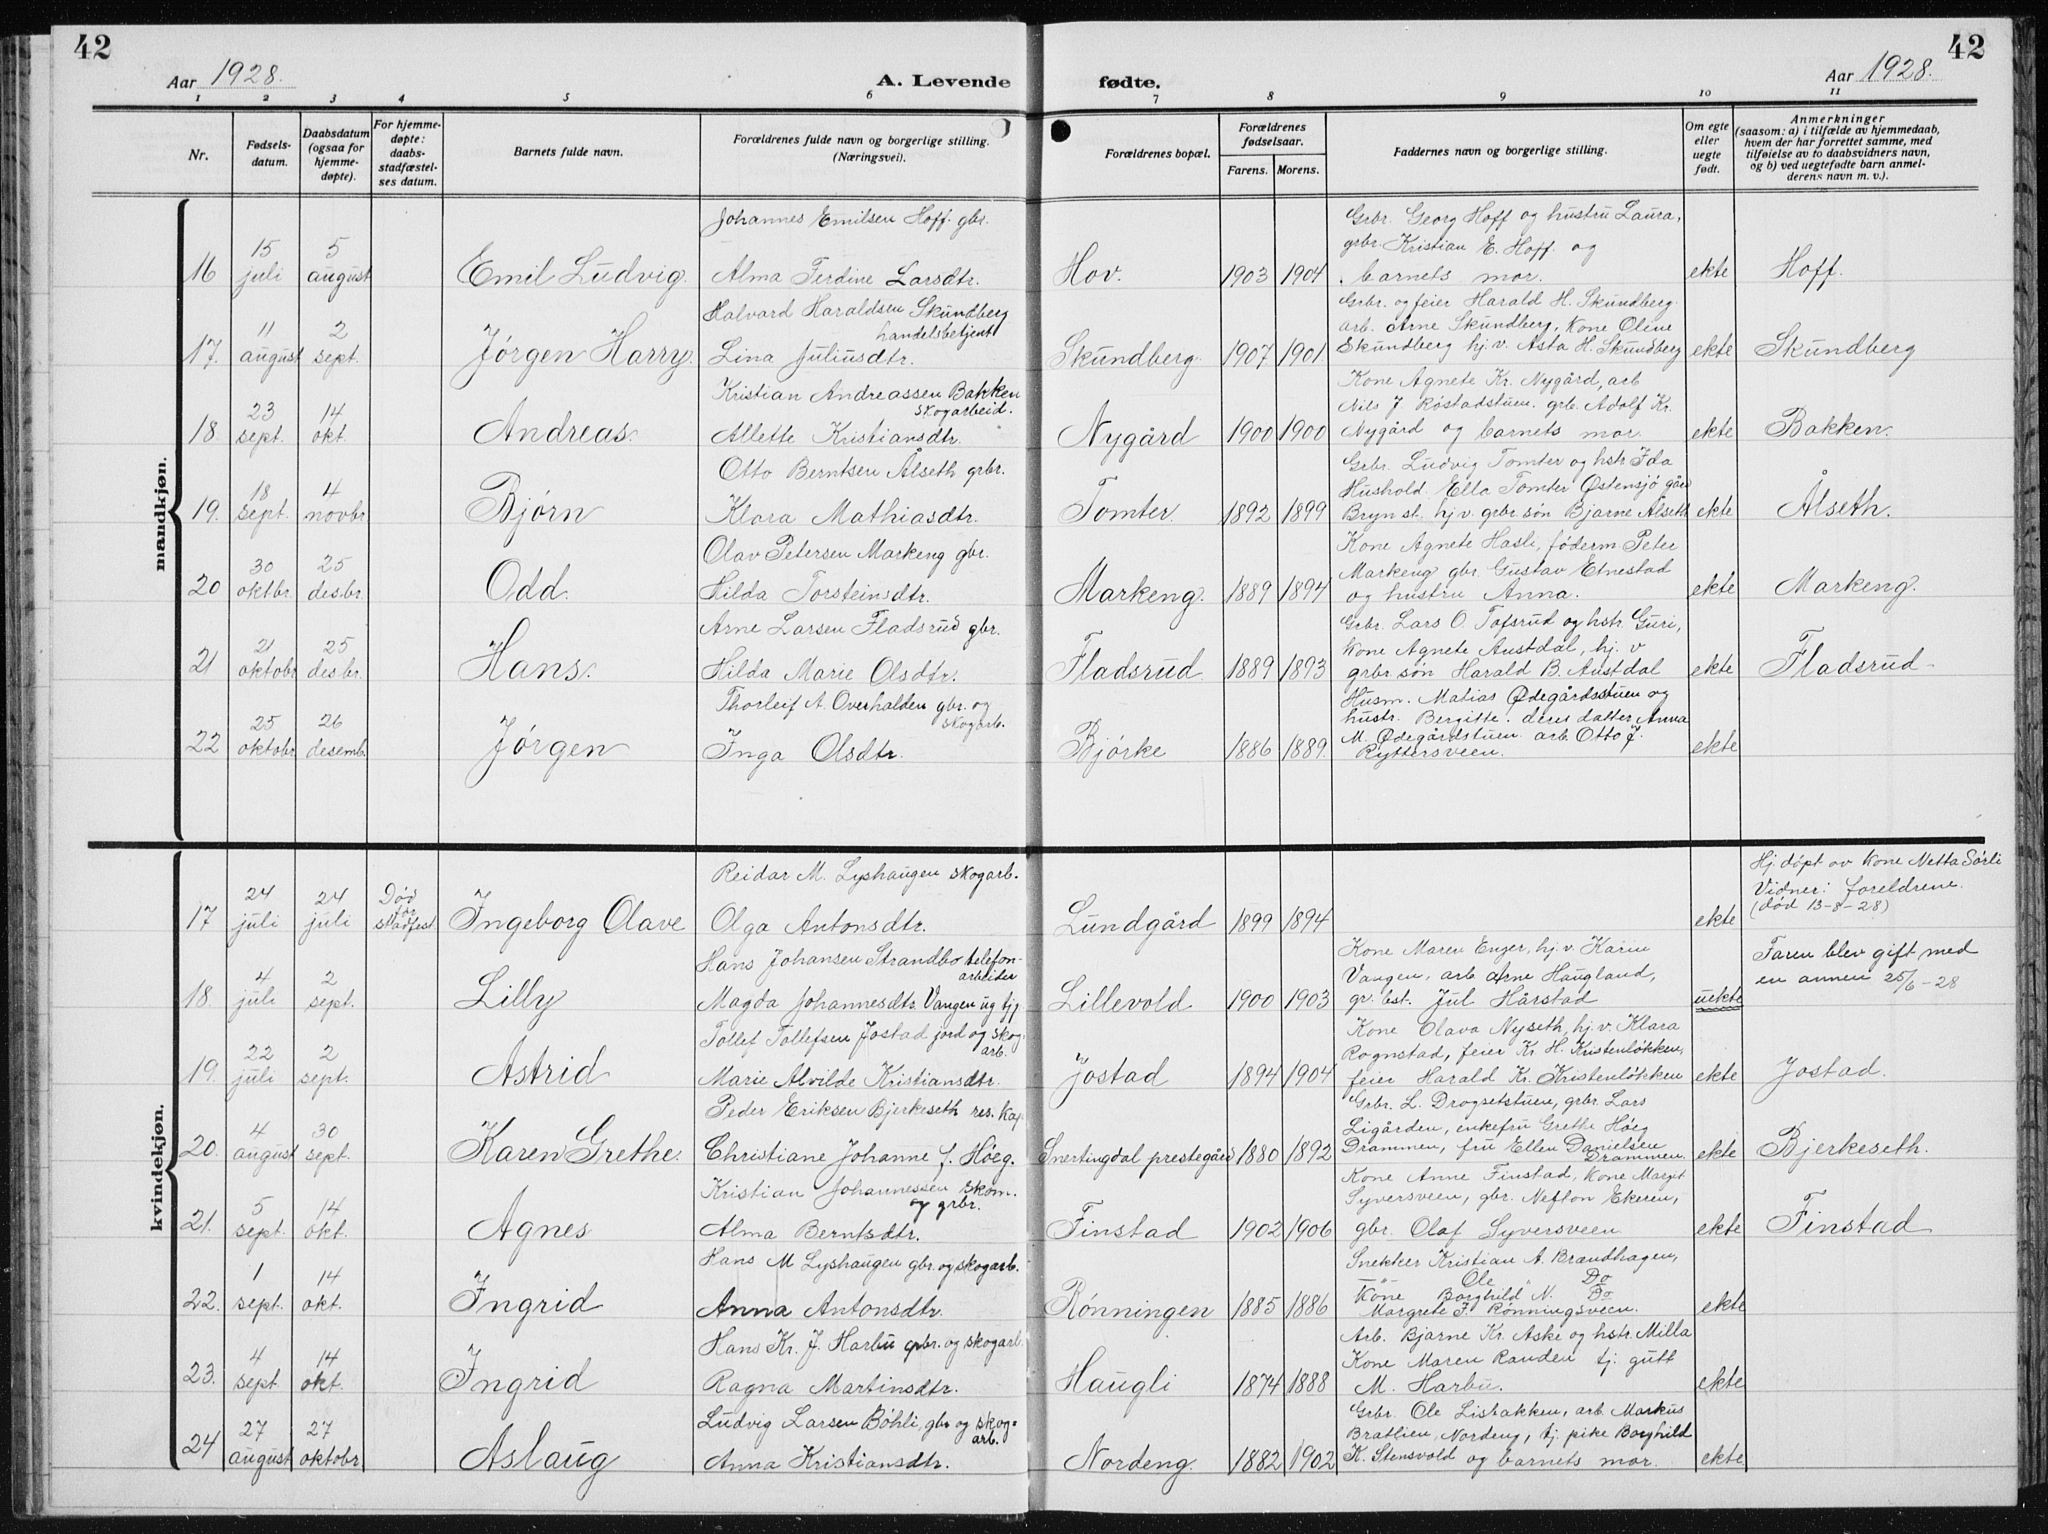 42
42
Aar 1928.
A. Levende
fødte.
Aar 1928.
1 2 3 4 5 6 7 8 9 10 11
Nr.
Fødsels-
datum.
Daabsdatum
(ogsaa for
hjemme-
døpte).
For hjemme-
døpte:
daabs-
stadfæstel-
ses datum.
Barnets fulde navn.
Forældrenes fulde navn og borgerlige stilling.
(Næringsvei).
Forældrenes bopæl.
Forældrenes
fødselsaar.
Farens. Morens.
Faddernes navn og borgerlige stilling.
Om egte
eller
uegte
født.
Anmerkninger
(saasom: a) i tilfælde av hjemmedaab,
hvem der har forrettet samme, med
tilføielse av to daabsvidners navn,
og b) ved uegtefødte barn anmel-
derens navn m. v.).
mandkjøn.
16
15
juli
5
august
Emil Ludvig.
Johannes Emilsen Hoff. gbr.
Alma Ferdine Larsdtr.
Hov.
1903 1904
Grbr. Georg Hoff og hustru Laura,
grbr. Kristian E. Hoff og
barnets mor.
ekte
Hoff.
17.
11
august
2
sept.
Jörgen Harry.
Halvard Haraldsen Skundberg
handelsbetjent
Lina Juliusdtr.
Skundberg.
1907 1901
Grbr. og feier Harald H. Skundberg
arb. Arne Skundberg, Kone Oline
Skundberg hj.v. Asta H. Skundberg
ekte
Skundberg
18.
23
sept.
14
okt.
Andreas.
Kristian Andreassen Bakken
skogarbeid.
Allette Kristiansdtr.
Nygård
1900 1900
Kone Agnete Kr. Nygård, arb
Nils J. Röstadstuen. grb. Adolf Kr.
Nygård og barnets mor.
ekte
Bakken.
19.
18
sept.
4
novbr
Bjørn
Otto Berntsen Ålseth grbr.
Klara Mathiasdtr.
Tomter.
1892 1899
Grbr. Ludvig Tomter og hstr Ida
Hushold. Ella Tomter Østensjö gård
Bryn st. hj.v. grbr søn Bjarne Ålseth
ekte
Ålseth.
20
30
oktbr.
25
desbr.
Odd.
Olav Petersen Markeng gbr.
Hilda Torsteinsdtr.
Markeng.
1889 1894
Kone Agnete Hasli, föderm. Peter
Markeng gbr. Gustav Etnestad
og hustru Anna.
ekte
Markeng.
21
21
oktobr
25
desbr.
Hans.
Arne Larsen Fladsrud gbr.
Hilda Marie Olsdtr.
Fladsrud
1889 1893
Grbr. Lars O. Tofsrud og hstr. Guri,
Kone Agnete Austdal, hj. v
grbr søn Harald B. Austdal
ekte
Fladsrud
22
25
oktobr
26
desemb.
Jörgen
Thorleif A. Overhalden gbr. og
skogarb.
Inga Olsdtr.
Björke
1886 1889.
Husm. Matias Ødegårdsstuen og
hustr. Bergitte. deres datter Anna
M. Ødegårdstuen. arb. Otto J.
Ryttersveen.
ekte
kvindekjøn.
17
24
juli
24
juli
Död
før
stadfest.
Ingeborg Olave
Reidar M. Lyshaugen skogarb.
Olga Antonsdtr.
Lundgård
1899 1894
ekte
Hj. döpt av Kone Netta Sörli
Vidner: foreldrene.
(död 13-8-28)
18.
4
juli
2
sept.
Lilly
Hans Johansen Strandbo telefon-
arbeider
Magda Johannesdtr. Vangen ug tj.
Lillevold
1900 1903
Kone Maren Enger, hj. v. Karin
Vangen, arb Arne Haugland,
gr. best. Jul Hårstad
uekte
Faren blev gift med
en annen 25/6-28
19.
22
juli
2
sept.
Astrid
Tollef Tollefsen Jostad jord og skog.
arb.
Marie Alvilde Kristiansdtr.
Jostad
1894 1904
Kone Olava Nyseth, hj. v. Klara
Rognstad, feier Kr. H. Kristenlökken,
feier Harald Kr. Kristenlökken
ekte
Jostad.
20.
4
august
30
sept.
Karen Grethe.
Peder Eriksen Bjerkeseth res. Kap
Christiane Johanne f. Höeg.
Snertingdal prestegård
1880 1892
Grbr. L. Drogsetstuen, grbr. Lars
Ligården, enkefru Grethe Höeg
Drammen, fru Ellen Danielsen
Drammen.
ekte
Bjerkeseth.
21.
5
sept.
14
okt.
Agnes
Kristian Johannessen skom.
og grbr.
Alma Berntsdtr.
Finstad
1902 1906
Kone Anne Finstad, Kone Margit
Syversveen, gbr. Nefton Ekeren,
gbr. Olaf Syversveen
ekte
Finstad
22.
1
sept.
14
okt.
Ingrid
Hans M Lyshaugen gbr. og skogarb.
Anna Antonsdtr.
Rönningen
1885 1886
Snekker Kristian A. Brandhagen,
—"— Ole " Do
Kone Borghild N. Do
Margrete F. Rönningsveen.
ekte
23.
4
sept.
14
okt.
Ingrid
Hans Kr. J. Harbu gbr. og skogarb.
Ragna Martinsdtr.
Haugli
1874 1888
Arb. Bjarne Kr. Aske og hstr. Milla
Kone Maren Randen tj. gutt
M. Harbu.
ekte
24
27
august
27
oktobr
Aslaug
Ludvig Larsen Böhli, gbr og skog=
arb.
Anna Kristiansdtr.
Nordeng.
1882 1902
Grbr. Ole Listakken, arb. Markus
Bratlien, Nordeng, tj. pike Borghild
K. Stensvold og barnets mor.
ekte